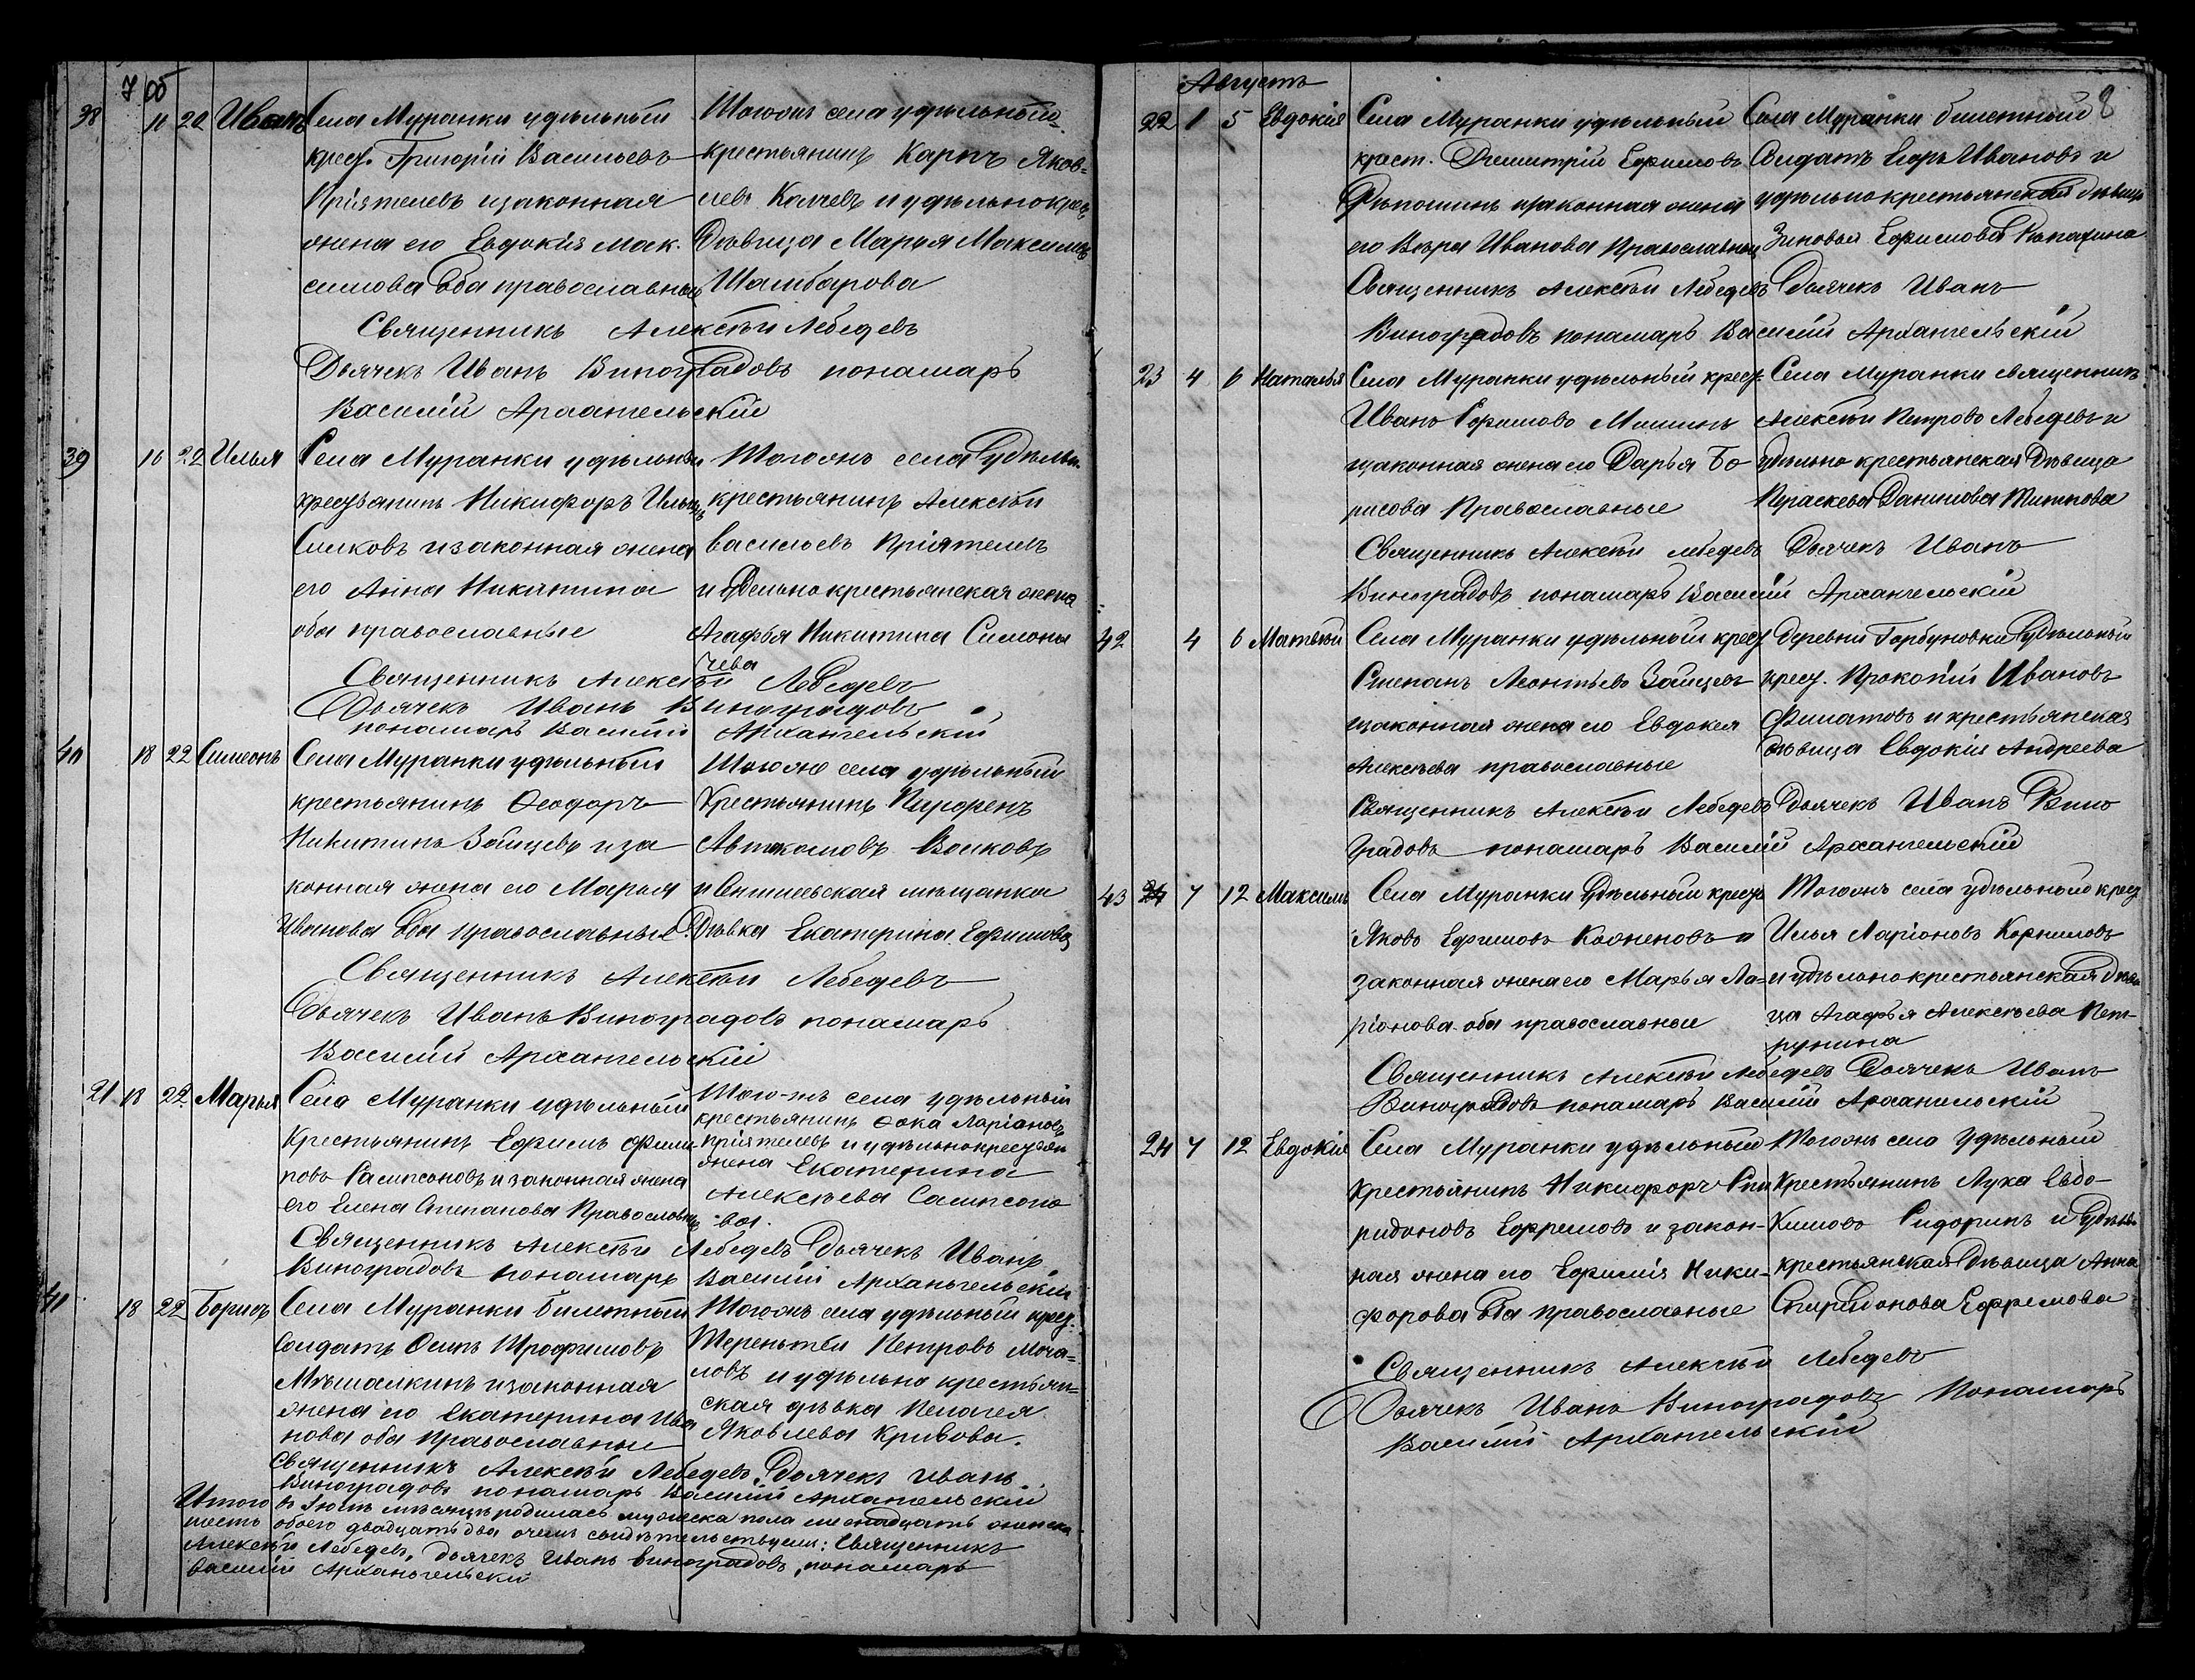 7 об
38 11 22 Иванъ Села Муранки удѣльный
крест. Григорій Васильевъ
Пріятелевъ и законная
жена его Евдокія Мак-
симова оба православные
Тогожъ села удѣльной
крестьянинъ Карпъ Яков-
левъ Колчевъ и удѣльнокрес.
Дѣвица Марья Максимова
Шамбарова
Священникъ Алексѣй Лебедевъ
Дьячекъ Иванъ Виноградовъ пономарь
Василій Архангельскій
39 16 22 Илья Села Муранки удѣльный
крестьянинъ Никифоръ Ильинъ
Симковъ и законная жена
его Анна Никитина
оба православные
Тогожъ села Удѣльн.
крестьянинъ Алексѣй
Васильевъ Пріятелевъ
и Удельнокрестьянская жена
Агафья Никитина Симона
чева
Священникъ Алексѣй Лебедевъ
Дьячекъ Иванъ Виноградовъ
пономарь Василій Архангельскій
40 18 22 Симеонъ Села Муранки удѣльный
крестьянинъ Ѳеодоръ
Никитинъ Зайцевъ и за
конная жена его Марья
Иванова Оба православные
Тогоже села удѣльный
Крестьянинъ Парфенъ
Автономовъ Волковъ
и Сенгилевская мѣщанка
Дѣвка Екатерина Ефимова
Священникъ Алексѣй Лебедевъ
Дьячекъ Иванъ Виноградовъ пономарь
Василій Архангельскій
21 18 22 Марья Села Муранки удѣльный
Крестьянинъ Ефимъ Филип
повъ Сампсоновъ и законная жена
его Елена Степанова Православные
Того-жъ села удѣльный
крестьянинъ Ѳока Ларіоновъ
Пріятелевъ и удѣльнокрестьян
жена Екатерина
Алексѣева Сампсоно
-ва.
Священникъ Алексѣй Лебедевъ Дьячекъ Иванъ
Виноградовъ пономарь Василий Архангельскій
41 18 22 Борисъ Села Муранки билетный
Солдатъ Осипъ Трофимовъ
Мѣшалкинъ и законная
жена его Екатерина Ива
нова оба православные
Тогожъ села удѣльный крес.
Терентѣй Петровъ Моча-
ловъ и удѣльно крестьян-
ская дѣвка Пелагея
Яковлева Кривова.
Священникъ Алексѣй Лебедевъ, Дьячекъ Иванъ
Виноградовъ пономарь Василій Архангельскій
Итого въ Іюлѣ мѣсяцѣ родилась мужеска пола шестнадцать женска
шесть обоего двадцать два о чемъ свидѣтельствуемъ: Священникъ
Алексѣй Лебедевъ, Дьячекъ Иванъ Виноградовъ, пономарь
Василій Архангельскій
8
Августъ
22 1 5 Евдокія Села Муранки удѣльный
крест. Димитрій Ефимовъ
и законная жена
его Вѣра Иванова Православные
Села Муранки билетный
Солдатъ Егоръ Ивановъ и
удѣльнокрестьянская дѣвица
Зиновья Ефимова
Священникъ Алексѣй Лебедевъ Дьячекъ Иванъ
Виноградовъ пономарь Василій Архангельскій
23 4 6 Наталья Села Муранки удѣльный крест.
Иванъ Ефимовъ Мишинъ
и законная жена его Дарья Бо
рисова Православные
Села Муранки священникъ
Алексѣй Петровъ Лебедевъ и
удѣльно крестьянская Дѣвица
Праскевья Данилова Титкова
Священникъ Алексѣй Лебедевъ Дьячекъ Иванъ
Виноградовъ пономарь Василій Архангельскій
42 4 6 Матвѣй Села Муранки удѣльный крест
Степанъ Леонтьевъ Зайцевъ
и законная жена его Евдокея
Алексѣева православные
Деревни Горбуновки Удѣльный
крест. Прокопій Ивановъ
Филатовъ и крестьянская
дѣвица Евдокія Андреева
Священникъ Алексѣй Лебедевъ Дьячекъ Иванъ Вино
градовъ пономарь Василій Архангельскій
43 24 7 12 Максимъ Села Муранки Удѣльный крест
Яковъ Ефимовъ и
законная жена его Марья Ла-
ріонова оба православные
Тогожъ села удѣльный крест
Илья Ларіоновъ Корниловъ
и удѣльнокрестьянская Дѣви
ца Агафья Алексѣева Пет-
рунина
Священникъ Алексѣй Лебедевъ Дьячекъ Иванъ
Виноградовъ пономарь Василій Архангельскій
24 7 12 Евдокія Села Муранки удѣльный
Крестьянинъ Никифоръ Спи
ридоновъ Ефремовъ и закон-
ная жена его Ефимія Ники-
форова Оба православные
Тогожъ села Удѣльный
Крестьянинъ Лука Евдо-
кимовъ Сидоринъ и Удѣль
крестьянская Дѣвица Анна
Спиридонова Ефремова
Священникъ Алексѣй Лебедевъ
Дьячекъ Иванъ Виноградовъ Пономарь
Василий Архангельскій